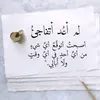 لم أعد أتفاجئ
أصبحت أتوقع أي شيء
من أي أحد في أي وقت
ولا أبالي